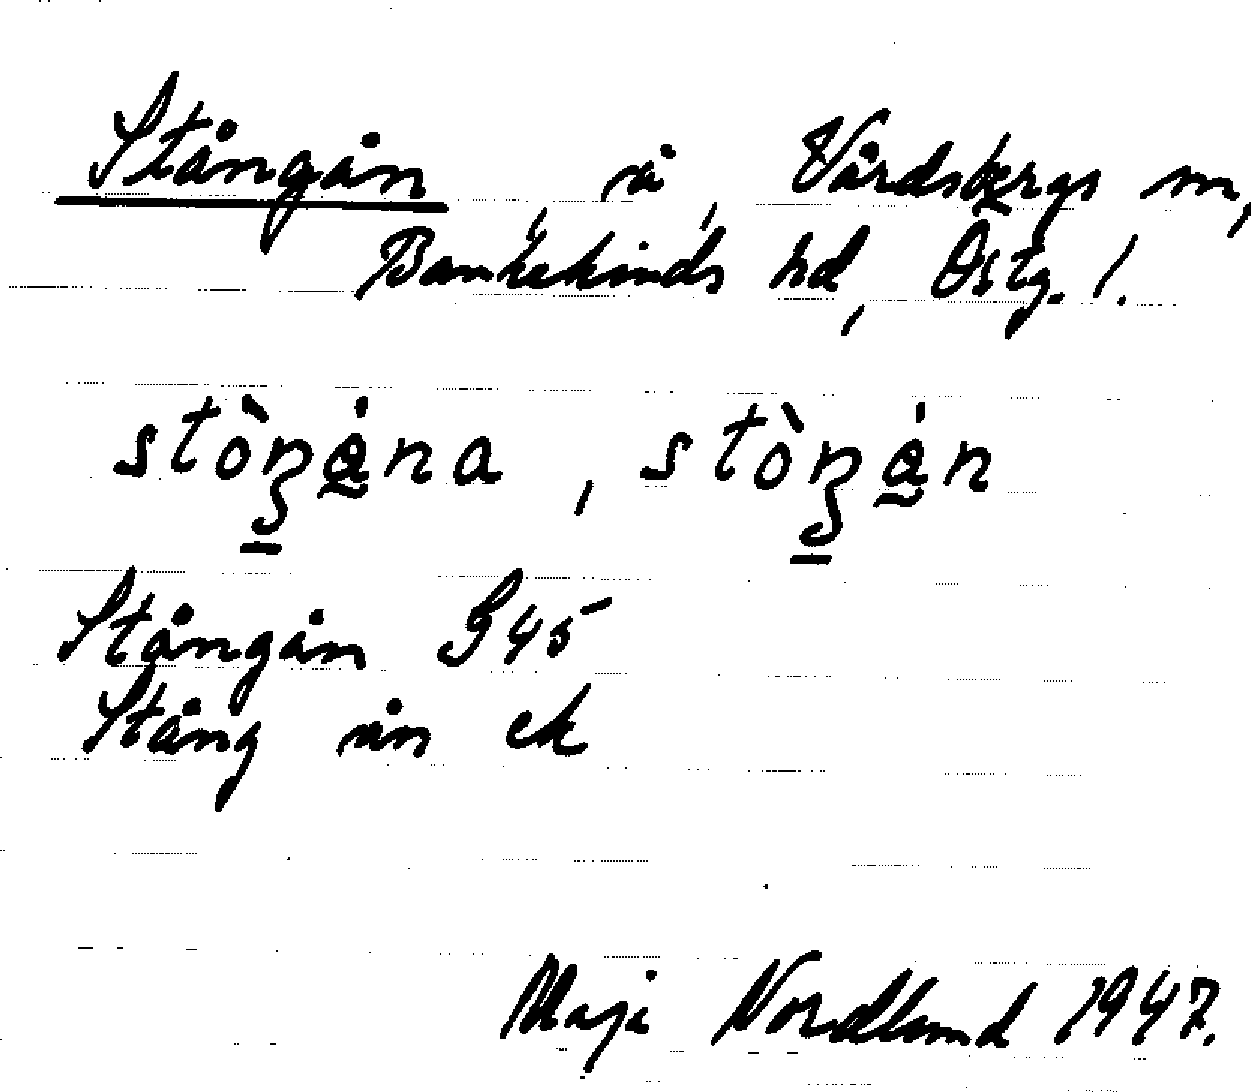 Stångån, å, Vårdsbergs sn,
Bankekinds hd, Östg. l.
stòŋåna, stòŋån
Stångån G45
Stång ån ek
Maja Nordlund 1947.